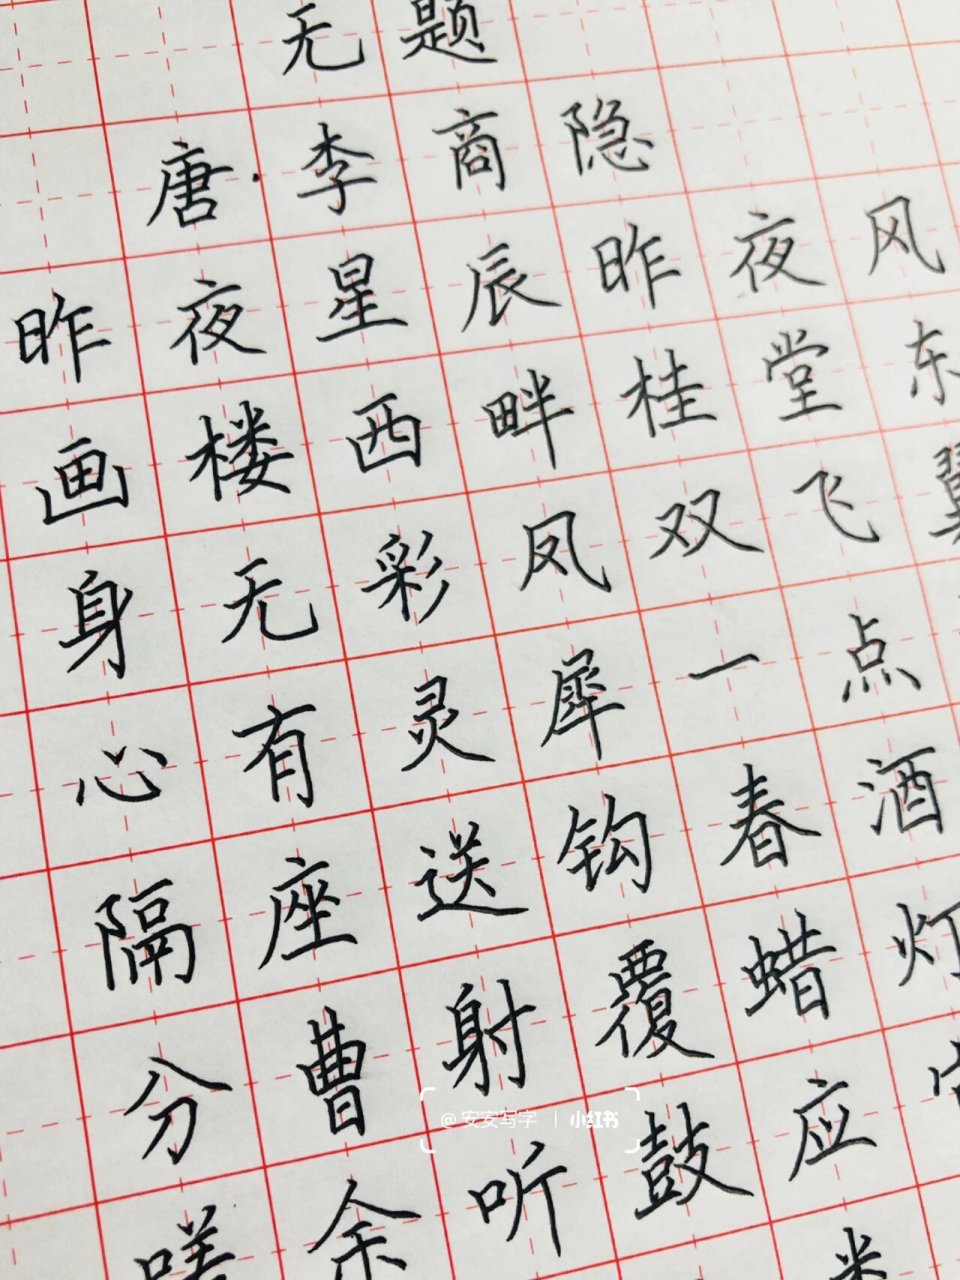 无题
唐·李商隐
昨夜星辰昨夜风
画楼西畔桂堂东
身无彩凤双飞翼
心有灵犀一点
隔座送钩春酒
分曹射覆蜡灯
嗟余听鼓应
@安安写字 | 小红书